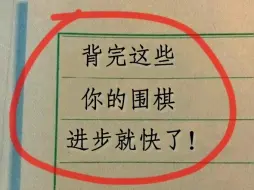 背完这些
你的围棋
进步就快了!